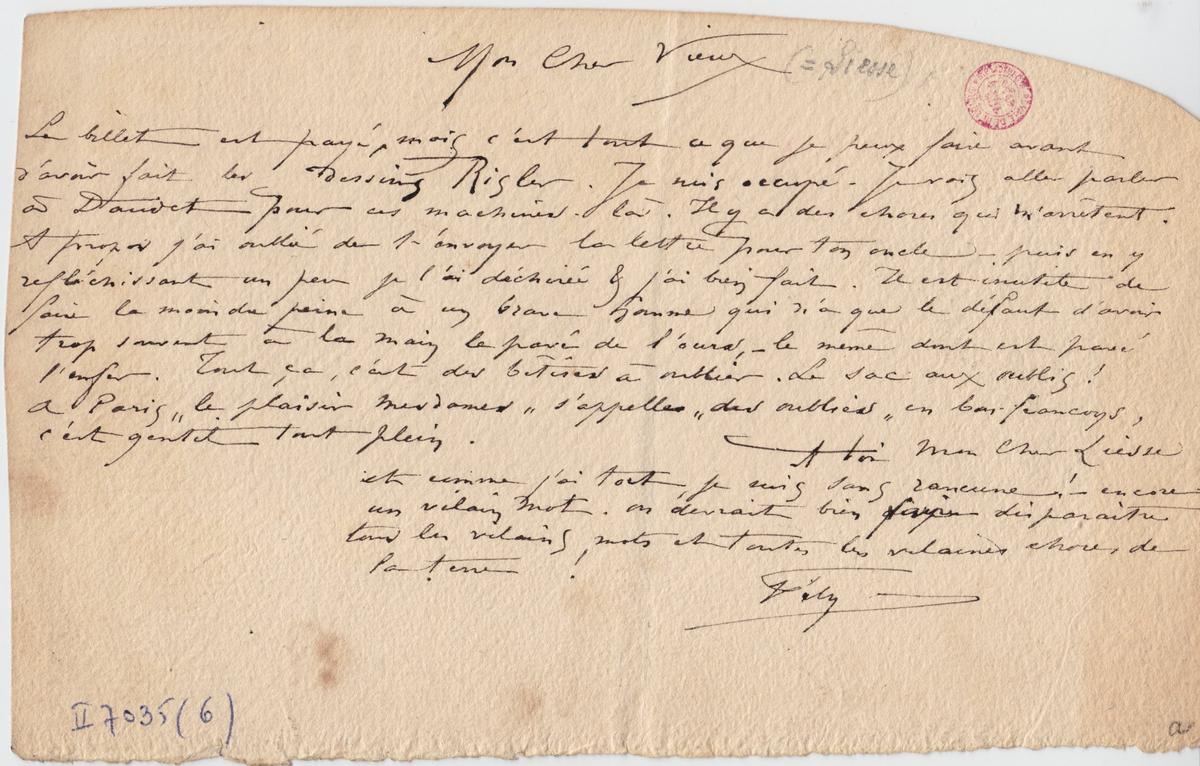 Mon Cher Vieux (= Liesse)
Le billet est payé, mais c'est tout ce que je peux faire avant
d'avoir fait les Dessins Rigler. Je suis occupé. Je vais aller parler
à Daudet pour ces machines-là. Il y a des choses qui m'arrêtent.
A propos j'ai oublié de t'envoyer la lettre pour ton oncle - puis en y
reflèchissant un peu je l'ai déchirée & j'ai bien fait. Il est inutile de
faire la moindre peine à un brave homme qui n'a que le défaut d'avoir
trop souvent à la main le pavé de l'ours, - le même dont est pavé
l'enfer. Tout ça, c'est des bêtises à oublier. Le sac aux oublis !
A Paris „ le plaisir mesdames „ s'appelle „ des oublies „ en bas-françoys,
c'est gentil tout plein.
A toi Mon Cher Liesse
et comme j'ai tort, je suis sans rancune ! - encore
un vilain mot. on devrait bien faire disparaitre
tous les vilains mots et toutes les vilaines choses de
la terre !
Fély
II 7035 (6)
a